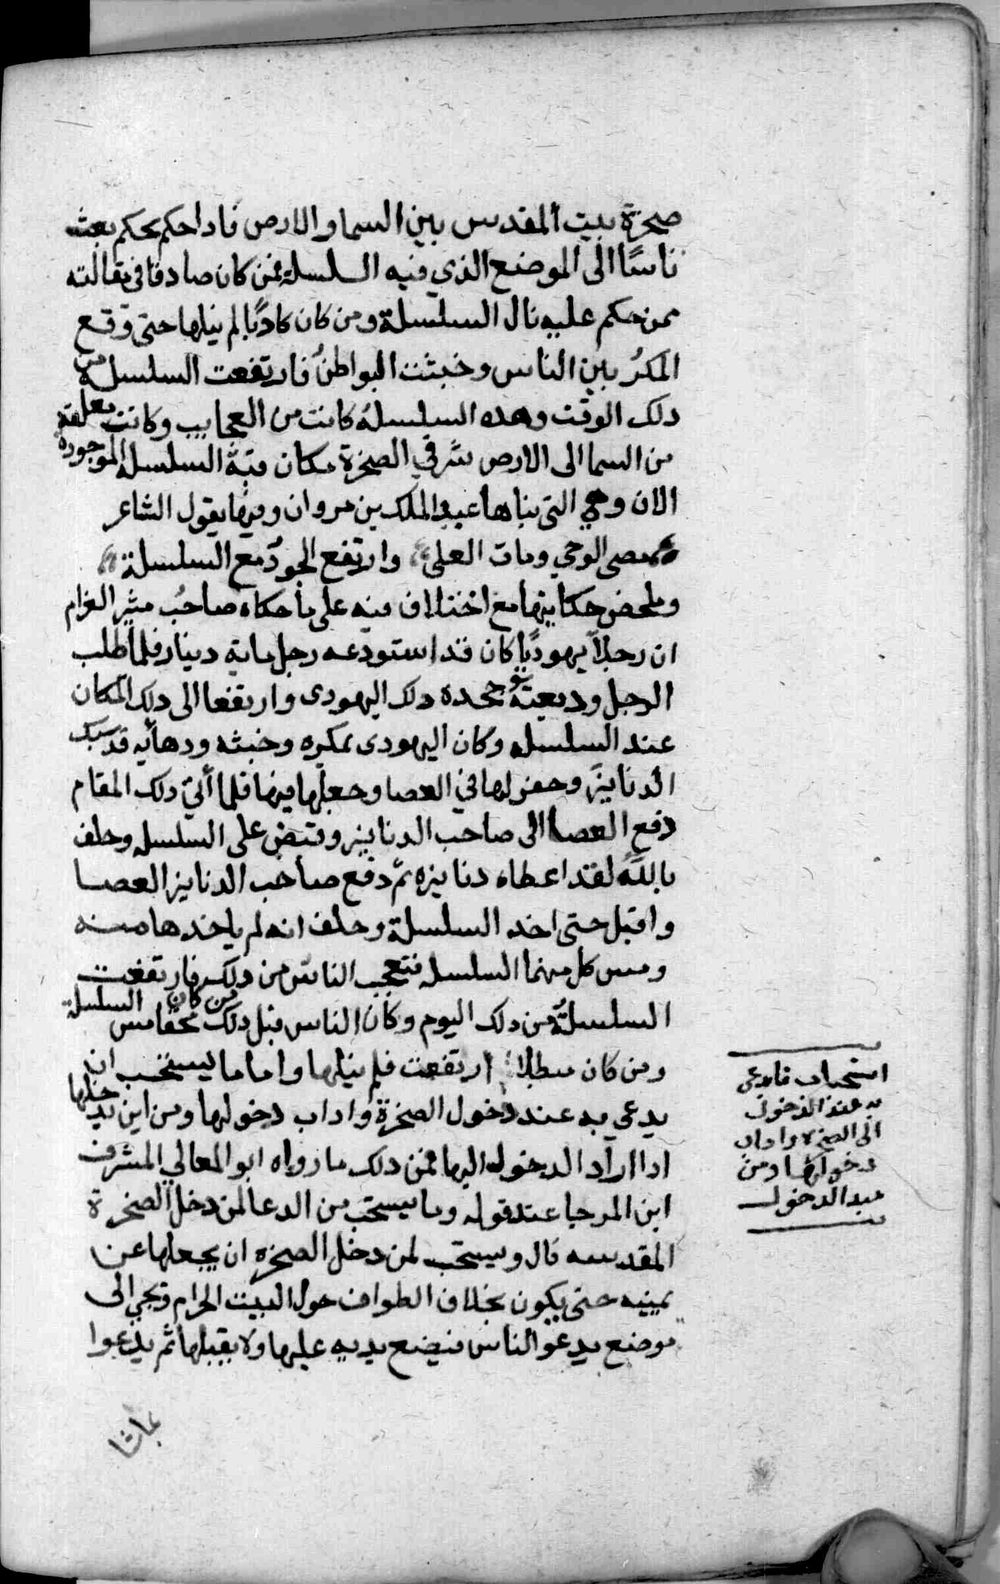 صخرة بيت المقدس بين السما والارض فاداحكم بحكم بعث
ناسًا الى الموضع الذي فيه السلسلة فمن كان صادقا في مقالته
ممن حكم عليه نال السلسلة ومن كان كاذبا لم ينلها حتى وقع
المكرُ بين الناس وخبثت البواطن فارتفعت السلسله من
دلك الوقت وهده السلسلة كانت من العجايب وكانت معلقة
من السما الى الارص شرقي الصخرة مكان قبة السلسله الموجودة
الان وهي التى بناها عبد الملك بن مروان وفيها يقول الشاعر
مصى الوحي ومات العلى وارتفع الجودُ مع السلسلة
وملخص حكايتها مع اختلاف فيه على ما حكاه صاحب مثير الغرام
ان رجلاً يهوديًا كان قد استودعه رجل ماية دينار فلما طلب
الرجل وديعته جحده دلك اليهودى وارتفعا الى دلك المكان
عند السلسله وكان اليهودى بمكره وخبثه ودهايه قد سبك
الدنانير وحفر لها في العصا وجعلها فيها فلما أتى دلك المقام
دفع العصا الى صاحب الدنانير وقبض على السلسله وحلف
بالله لقد اعطاه دنانيره ثم دفع صاحب الدنانير العصا
واقبل حتى اخد السلسلة وحلف انه لم ياخدها منه
ومس كل منهما السلسله فتعجب الناس من دلك فارتفعت
السلسلة من دلك اليوم وكان الناس قبل دلك من كان محقا مس السلسلة
ومن كان مبطلا ارتفعت فلم ينلها واما ما يستحب ان
يدعى به عند دخول الصخرة واداب دخولها ومن اين يدخلها
ادا اراد الدخول اليها فمن دلك ما رواه ابو المعالي المشرف
ابن المرجا عند قوله وما يستحب من الدعا لمن دخل الصخرة
المقدسه قال ويستحب لمن دخل الصخره ان يجعلها عن
يمينه حتى يكون بخلاف الطواف حول البيت الحرام ويجي الى
موضع يدعو الناس فيضع يديه عليها ولا يقبلها ثم يدعوا
استحباب ما يدعى
به عند الدخول
الى الصخرة واداب
دخولها ومن
الدخول